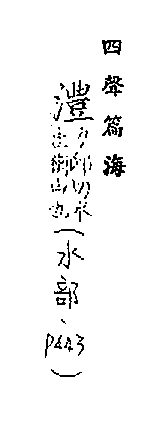 四聲篇海
澧力邸切水出衡山也(水部、P443)